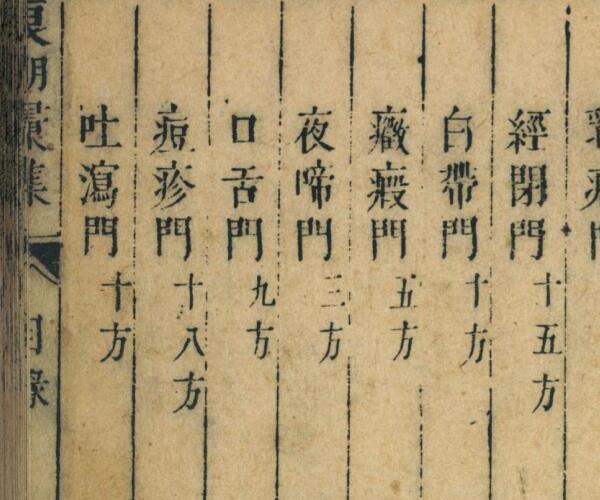 經閉門 十五方
白帶門 十方
癥瘕門 五方
夜啼門 三方
口舌門 九方
痘疹門 十八方
吐瀉門 十方
集 目錄